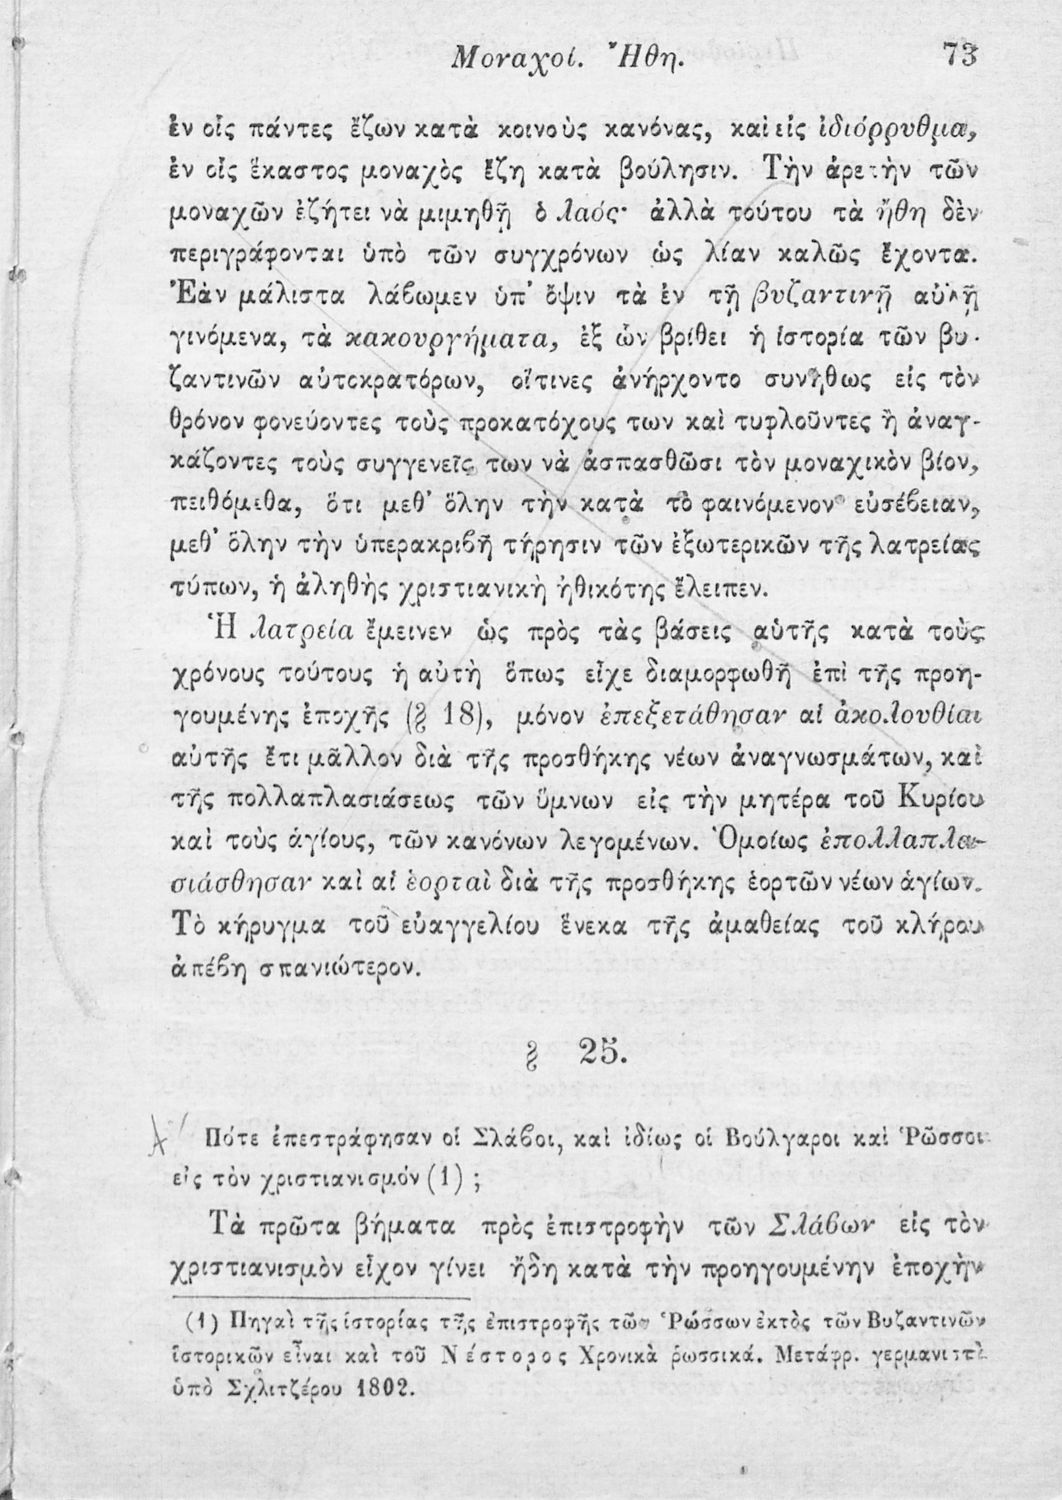 Μοναχοί. Ἤθη. 73
ἐν οἷς πάντες ἔζων κατὰ κοινοὺς κανόνας, καὶ εἰς ἰδιόρρυθμα,
ἐν οἷς ἕκαστος μοναχὸς ἔζη κατὰ βούλησιν. Τὴν ἀρετὴν τῶν
μοναχῶν ἐζήτει νὰ μιμηθῇ ὁ λαός· ἀλλὰ τούτου τὰ ἤθη δὲν
περιγράφονται ὑπὸ τῶν συγχρόνων ὡς λίαν καλῶς ἔχοντα.
Ἐὰν μάλιστα λάβωμεν ὑπ' ὄψιν τὰ ἐν τῇ βυζαντινῇ αὐλῇ
γινόμενα, τὰ κακουργήματα, ἐξ ὧν βρίθει ἡ ἱστορία τῶν βυ-
ζαντινῶν αὐτοκρατόρων, οἵτινες ἀνήρχοντο συνήθως εἰς τὸν
θρόνον φονεύοντες τοὺς προκατόχους των καὶ τυφλοῦντες ἢ ἀναγ-
κάζοντες τοὺς συγγενεῖς των νὰ ἀσπασθῶσι τὸν μοναχικὸν βίον,
πειθόμεθα, ὅτι μεθ' ὅλην τὴν κατὰ τὸ φαινόμενον εὐσέβειαν,
μεθ' ὅλην τὴν ὑπερακριβῆ τήρησιν τῶν ἐξωτερικῶν τῆς λατρείας
τύπων, ἡ ἀληθὴς χριστιανικὴ ἠθικότης ἔλειπεν.
Ἡ λατρεία ἔμεινεν ὡς πρὸς τὰς βάσεις αὑτῆς κατὰ τοὺς
χρόνους τούτους ἡ αὐτὴ ὅπως εἶχε διαμορφωθῆ ἐπὶ τῆς προη-
γουμένης ἐποχῆς (§ 18), μόνον ἐπεξετάθησαν αἱ ἀκολουθίαι
αὐτῆς ἔτι μᾶλλον διὰ τῆς προσθήκης νέων ἀναγνωσμάτων, καὶ
τῆς πολλαπλασιάσεως τῶν ὕμνων εἰς τὴν μητέρα τοῦ Κυρίου
καὶ τοὺς ἁγίους, τῶν κανόνων λεγομένων. Ὁμοίως ἐπολλαπλα-
σιάσθησαν καὶ αἱ ἑορταὶ διὰ τῆς προσθήκης ἑορτῶν νέων ἁγίων.
Τὸ κήρυγμα τοῦ εὐαγγελίου ἕνεκα τῆς ἀμαθείας τοῦ κλήρου
ἀπέβη σπανιώτερον.
§ 25.
Πότε ἐπεστράφησαν οἱ Σλάβοι, καὶ ἰδίως οἱ Βούλγαροι καὶ Ῥῶσσοι
εἰς τὸν χριστιανισμόν (1) ;
Τὰ πρῶτα βήματα πρὸς ἐπιστροφὴν τῶν Σλάβων εἰς τὸν
χριστιανισμὸν εἶχον γίνει ἤδη κατὰ τὴν προηγουμένην ἐποχὴν
(1) Πηγαὶ τῆς ἱστορίας τῆς ἐπιστροφῆς τῶν Ῥώσσων ἐκτὸς τῶν Βυζαντινῶν
ἱστορικῶν εἶναι καὶ τοῦ Νέστορος Χρονικὰ ῥωσσικά. Μετάφρ. γερμανιστὶ
ὑπὸ Σχλιτζέρου 1802.